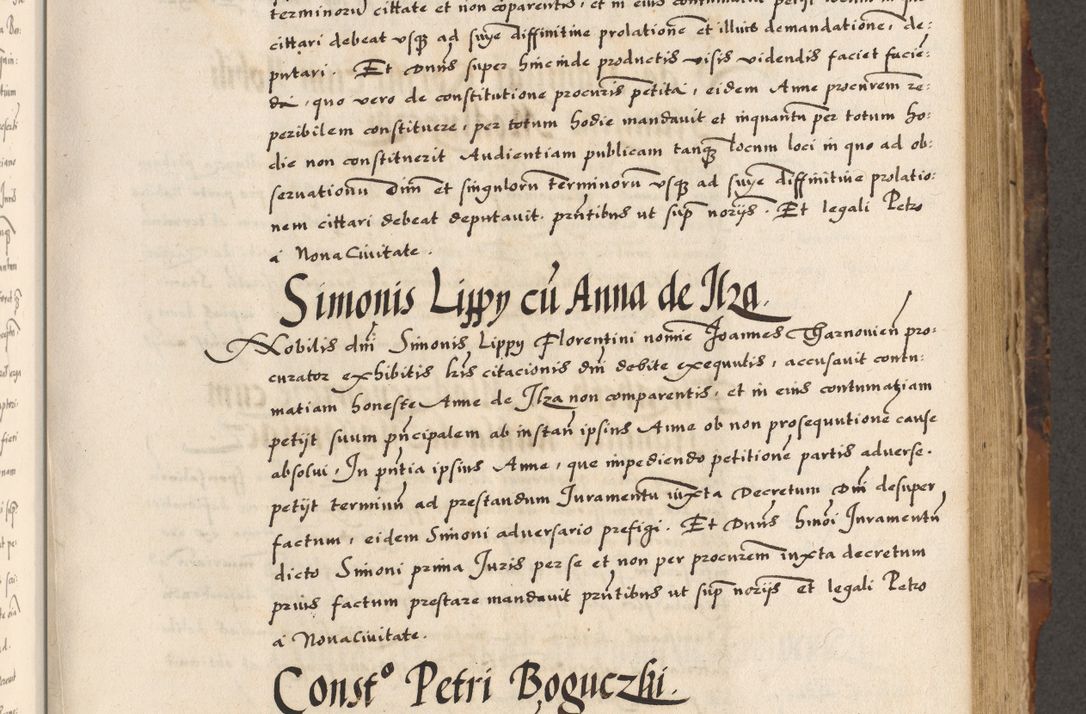 terminorũ cittate et non cõparentis, et in eius contumatiã petijt locum in quo
cittari debeat vsq̃ ad suye diffinitiue prolationẽ et illius demandationẽ, de:
putari. Et Dñus super hincinde productis visis videndis faciet facie:
da, quo vero de constitutione procuris petita, eidem Anne procurem re:
peribilem constituere, per totum hodie mandauit et inquantũ per totum ho:
die non constituerit Audientiam publicam tanq̃ locum loci in quo ad ob:
seruationũ Dñm et singulorũ terminorũ vsq̃ ad suye diffinitiue prolatio:
nem cittari debeat deputauit. pñtibus ut sup̃ norijs. Et legali Petro
à NonaCiuitate.
Simonis Lippy cũ Anna de Ilza.
Nobilis dñi Simonis Lippy Florentini noĩne Joannes Tharnovień pro:
curator exhibitis lris citacionis dñi debite exequutis, accusauit contu:
matiam honeste Anne de Ilza non comparentis, et in eius contumatiam
petijt suum pñcipalem ab instañ ipsius Anne ob non prosequutionẽ cause
absolui, In pñtia ipsius Anne, que impediendo petitionẽ partis aduerse.
petijt terminũ ad prestandum Juramentũ iuxta Decretum Dñi desuper
factum, eidem Simoni aduersario prefigi. Et Dñus hmõi Juramentũ
dicto Simoni prima Juris per se et non per procurem iuxta decretum
prius factum prestare mandauit pñtibus ut sup̃ norijs et legali Petro
à NonaCiuitate.
Const° Petri Boguczhi.